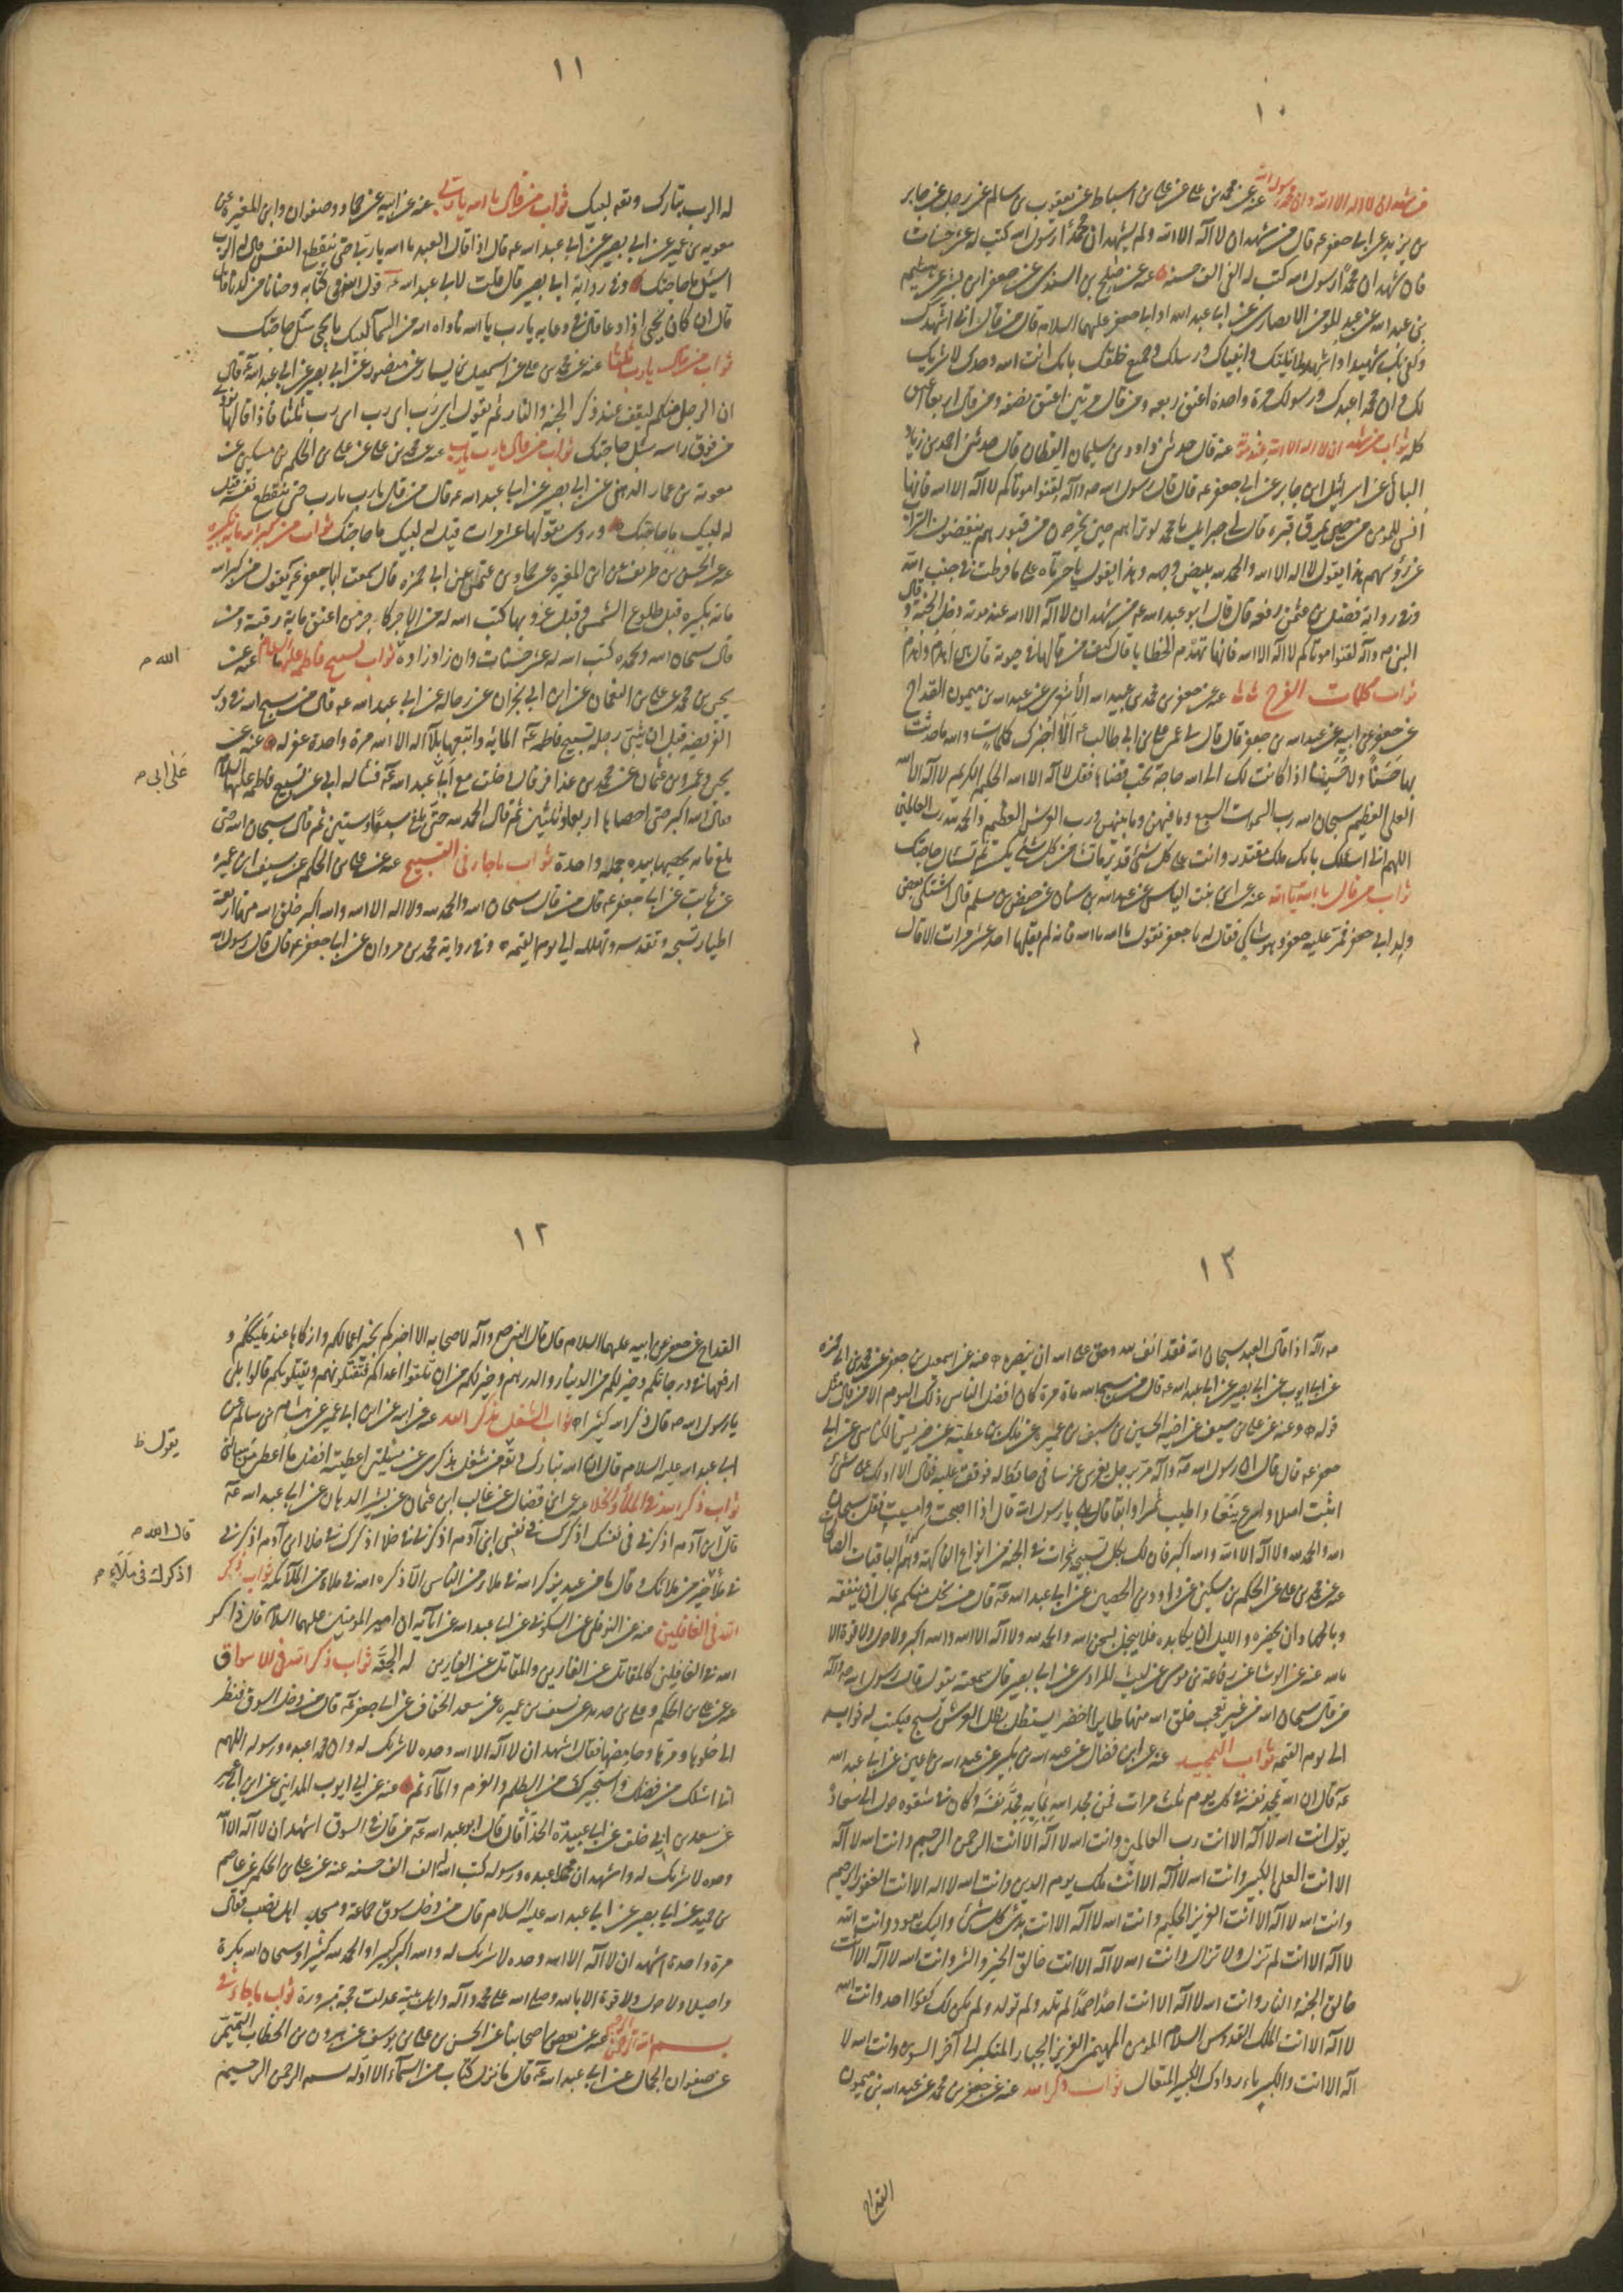 ١٠
من شهد ان لا اله الا الله وان محمدا رسول الله عنه عن محمد بن علي عن علي بن اسباط عن يعقوب بن سالم عن رجل عن جابر
بن يزيد عن ابي جعفر عه قال من شهد ان لا اله الا الله ولم يشهد ان محمدا رسول الله كتب له عشر حسنات
فان شهد ان محمدا رسول الله كتب له الفي الف حسنه عنه عن صالح بن السندي عن جعفر بن بشير عن هيثم
بن عبد الله عن عبد المؤمن الانصاري عن ابي عبد الله او ابي جعفر عليهما السلام قال من قال اني اشهدك
وكفى بك شهيدا واشهد ملائكتك وانبياك ورسلك وجميع خلقك بانك انت الله وحدك لا شريك
لك وان محمدا عبدك ورسولك مرة واحدة اعتق ربعه ومن قال مرتين اعتق نصفه ومن قال اربعا اعتق
كله ثواب من شهد ان لا اله الا الله عند موته عنه قال حدثني داود بن سليمان القطان قال حدثني احمد بن زياد
اليماني عن اسرائيل عن جابر عن ابي جعفر عه قال قال رسول الله صه وآله لقنوا موتاكم لا اله الا الله فانها
انس للمؤمن حين يمرق قبره قال لي جبرائيل يا محمد لو تراهم حين يخرجون من قبورهم ينفضون التراب
عن رؤسهم هذا يقول لا اله الا الله والحمد لله يبيض وجهه وهذا يقول يا حسرتاه على ما فرطت في جنب الله
وفي رواية فضيل بن عثمن رفعه قال قال ابو عبد الله عه من شهد ان لا اله الا الله عند موته دخل الجنة وقال
النبي صه وآله لقنوا موتاكم لا اله الا الله فانها تهدم الخطايا قال كيف من قالها في حيوته قال هي اهدم واهدم
ثواب كلمات الفرج عنه عن جعفر بن محمد بن عبيد الله الاشعري عن عبد الله بن ميمون القداح
عن جعفر عن ابيه عن عبد الله بن جعفر قال قال لي عمي علي بن ابي طالب عه الا اخبرك كلمات والله ما حدثت
بها حسنا ولا حسينا اذا كانت لك الى الله حاجة تحب قضاها فقل لا اله الا الله الحليم الكريم لا اله الا الله
العلي العظيم سبحان الله رب السموات السبع وما فيهن وما بينهن ورب العرش العظيم والحمد لله رب العالمين
اللهم اني اسئلك بانك ملك مقتدر وانت على كل شئ قدير ما تشاء من كل شئ يكن ثم تسئل حاجتك
ثواب من قال يا الله يا الله عنه عن ابن بنت الياس عن عبد الله بن سنان عن حفص بن مسلم قال اشتكى بعض
ولد ابي جعفر فمر عليه جعفر وهو شاكي فقال له يا جعفر تقول يا الله يا الله فانه لم يقلها احد عشر مرات الا قال
١١
له الرب تبارك وتعالى لبيك ثواب من قال يا الله يا رب عنه عن ابيه عن حماد وصفوان وابن المغيرة عن
معوية بن عمير عن ابي بصير عن ابي عبد الله عه قال اذا قال العبد يا الله يا رب حتى ينقطع النفس قال له الرب
اسئل ما حاجتك وفي رواية ابي بصير قال قلت لابي عبد الله عه قول الله في كتابه وحنانا من لدنا قال
قال ان كان يحيى اذا دعا قال في دعايه يا رب يا الله ناداه الله من السمآء لبيك يا يحيى سئل حاجتك
ثواب من قال يا رب ثلثا عنه عن محمد بن علي عن اسمعيل بن يسار عن منصور عن ابي بصير عن ابي عبد الله عه قال
ان الرجل منكم ليقف عند ذكر الجنة والنار ثم يقول اى رب اى رب اى رب ثلثا فاذا قالها نودي
من فوق راسه سئل حاجتك ثواب من قال يا رب يا رب عنه عن محمد بن علي عن علي بن الحكم بن مسكين عن
معوية بن عمار الدهني عن ابي بصير عن ابي عبد الله عه قال من قال يا رب يا رب حتى ينقطع نفسه قيل
له لبيك ما حاجتك وروي من يقولها عشر مرات قيل له لبيك ما حاجتك ثواب من كبر الله ماية تكبيره
عنه عن الحسن بن طريف عن ابن المغيره عن حماد بن عثمن عن ابي حمزه قال سمعت ابا جعفر عه يقول من كبر الله
ماية تكبيره قبل طلوع الشمس وقبل غروبها كتب الله له من الاجر كاجر من اعتق ماية رقبة ومن
قال سبحان الله وبحمده كتب الله له عشر حسنات وان زاد زاده ثواب تسبيح فاطمه عليها السلام عنه عن
الله م
يحيى بن محمد عن علي بن النعمان عن ابن ابي نجران عن رجاله عن ابي عبد الله عه قال من سبح الله في دبر
الفريضه قبل ان يثني رجليه تسبيح فاطمه عه الماية واتبعها بلا اله الا الله مرة واحدة غفر له عنه عن
يحيى وعمرو بن عثمان عن محمد بن عذافر قال دخلت مع ابي عبد الله عه فسأله ابي عن تسبيح فاطمه عليها السلام
على ابي م
فقال الله اكبر حتى احصاها اربعا وثلثين ثم قال الحمد لله حتى بلغ سبعا وستين ثم قال سبحان الله حتى
بلغ مايه يحصيها بيده جملة واحدة ثواب ما جاء في التسبيح عنه عن علي بن الحكم عن سيف ابن عميره
عن ثابت عن ابي جعفر عه قال من قال سبحان الله والحمد لله ولا اله الا الله والله اكبر خلق الله منها اربعة
اطيار تسبحه وتقدسه وتهلله الى يوم القيمة وفي رواية محمد بن مروان عن ابي جعفر عه قال قال رسول الله
١٣
صه وآله اذا قال العبد سبحان الله فقد انف لله وحق على الله ان ينصره عنه عن اسمعيل بن جعفر عن محمد بن ابي حمزه
عن ابي ايوب عن ابي بصير عن ابي عبد الله عه قال من سبح الله مائة مرة كان افضل الناس ذلك اليوم الا من قال مثل
قوله وعنه عن علي بن سيف عن اخيه الحسين بن سيف بن عميره عن ملك بن عطيه عن ضريس الكناسي عن ابي
جعفر عه قال قال ان رسول الله صه وآله مر برجل يغرس غرسا في حائط له فوقف عليه فقال الا ادلك على شئ
اثبت اصلا واسرع ينعا واطيب ثمرا وابقا قال بلى يا رسول الله قال اذا اصبحت وامسيت فقل سبحان
الله والحمد لله ولا اله الا الله والله اكبر فان لك بكل تسبيحة شجرات في الجنة من انواع الفاكهة وهم الباقيات الصالحات
عنه عن محمد بن علي عن الحكم بن مسكين عن داود بن الحصين عن ابي عبد الله عه قال من بخل منكم بمال ان ينفقه
وبالجهاد ان يحضره والليل ان يكابده فلا يبخل بسبحن الله والحمد لله ولا اله الا الله والله اكبر ولا حول ولا قوة الا
بالله عنه عن الوشاء عن رفاعة بن موسى عن ليث المرادي عن ابي بصير قال سمعته يقول قال رسول الله صه وآله
من قال سبحان الله من غير تعجب خلق الله منها طايرا اخضر يستظل بظل العرش يسبح فيكتب له ثوابه
الى يوم القيمه ثواب التمجيد عنه عن ابن فضال عن عبد الله بن بكير عن عبد الله بن اعين عن ابي عبد الله
عه قال ان الله يمجد نفسه في كل يوم ثلث مرات فمن مجد الله بما به مجد نفسه وكان في شقوه حول الى سعادة
يقول انت الله لا اله الا انت رب العالمين وانت الله لا اله الا انت الرحمن الرحيم وانت الله لا اله
الا انت العلي الكبير وانت الله لا اله الا انت ملك يوم الدين وانت الله لا اله الا انت الغفور الرحيم
وانت الله لا اله الا انت العزيز الحكيم وانت الله لا اله الا انت بدئ كل شئ واليك يعود وانت الله
لا اله الا انت لم تزل ولا تزال وانت الله لا اله الا انت خالق الخير والشر وانت الله لا اله الا انت
خالق الجنة والنار وانت الله لا اله الا انت احدا صمدا لم تلد ولم تولد ولم يكن لك كفوا احد وانت الله
لا اله الا انت الملك القدوس السلام المؤمن المهيمن العزيز الجبار المتكبر الى آخر السوره وانت الله لا
اله الا انت والكبرياء رداوك الكبير المتعال ثواب ذكر الله عنه عن جعفر بن محمد عن عبد الله بن ميمون
القداح
١٢
القداح عن جعفر عن ابيه عليهما السلام قال قال النبي صه وآله لاصحابه الا اخبركم بخير اعمالكم وازكاها عند مليككم و
ارفعها في درجاتكم وخير لكم من الدينار والدرهم وخير لكم من ان تلقوا اعداكم فتقتلونهم ويقتلونكم قالوا بلى
يا رسول الله صه قال ذكر الله كثيرا ثواب الشغل بذكر الله عنه عن ابيه عن ابن ابي عمير عن هشام بن سالم عن
ابي عبد الله عليه السلام قال ان الله تبارك وتعه من شغل بذكري عن مسئلتي اعطيته افضل ما اعطي من سالني
يقول ظ
ثواب ذكر الله في الملأ والخلا عنه عن ابن فضال عن غالب ابن عثمان عن بشير الدهان عن ابي عبد الله عه
قال ابن آدم اذكرني في نفسك اذكرك في نفسي ابن آدم اذكرني في خلا اذكرك في خلا ابن آدم اذكرني
قال الله م
في ملأ خير من ملائك وقال ما من عبد يذكر الله في ملاء من الناس الا ذكره الله في ملاء من الملآئكه ثواب ذكر
اذكرك في ملاء م
الله في الغافلين عنه عن النوفلي عن السكوني عن ابي عبد الله عن آبائه ان امير المؤمنين عليهما السلام قال ذاكر
الله في الغافلين كالمقاتل عن الفارين والمقاتل عن الفارين له الجنة ثواب ذكر الله في الاسواق
عنه عن علي بن الحكم وعلي بن حديد عن سيف بن عميره عن سعد الخفاف عن ابي جعفر عه قال من دخل السوق فنظر
الى حلوها ومرها وحامضها فقال اشهد ان لا اله الا الله وحده لا شريك له وان محمدا عبده ورسوله اللهم
اني اسئلك من فضلك واستجير بك من الظلم والغرم والمآثم عنه عن ابي ايوب المدايني عن ابن ابي عمير
عن سعد بن ابي خلف عن ابي عبيدة الحذآء قال قال ابو عبد الله عه من قال في السوق اشهد ان لا اله الا الله
وحده لا شريك له واشهد ان محمدا عبده ورسوله كتب الله له الف الف حسنه عنه عن علي بن الحكم عن عاصم
بن حميد عن ابي بصير عن ابي عبد الله عليه السلام قال من دخل سوق جماعة ومسجد اهل نصب فقال
مرة واحدة اشهد ان لا اله الا الله وحده لا شريك له والله اكبر كبيرا والحمد لله كثيرا وسبحان الله بكرة
واصيلا ولا حول ولا قوة الا بالله وصلى الله على محمد وآله واهل بيته عدلت حجة مبرورة ثواب ما جاء في
بسم الله الرحمن الرحيم عنه عن بعض اصحابنا عن الحسن بن علي بن يوسف عن هرون بن الخطاب التميمي
عن صفوان الجمال عن ابي عبد الله عه قال ما نزل كتاب من السمآء الا اوله بسم الله الرحمن الرحيم